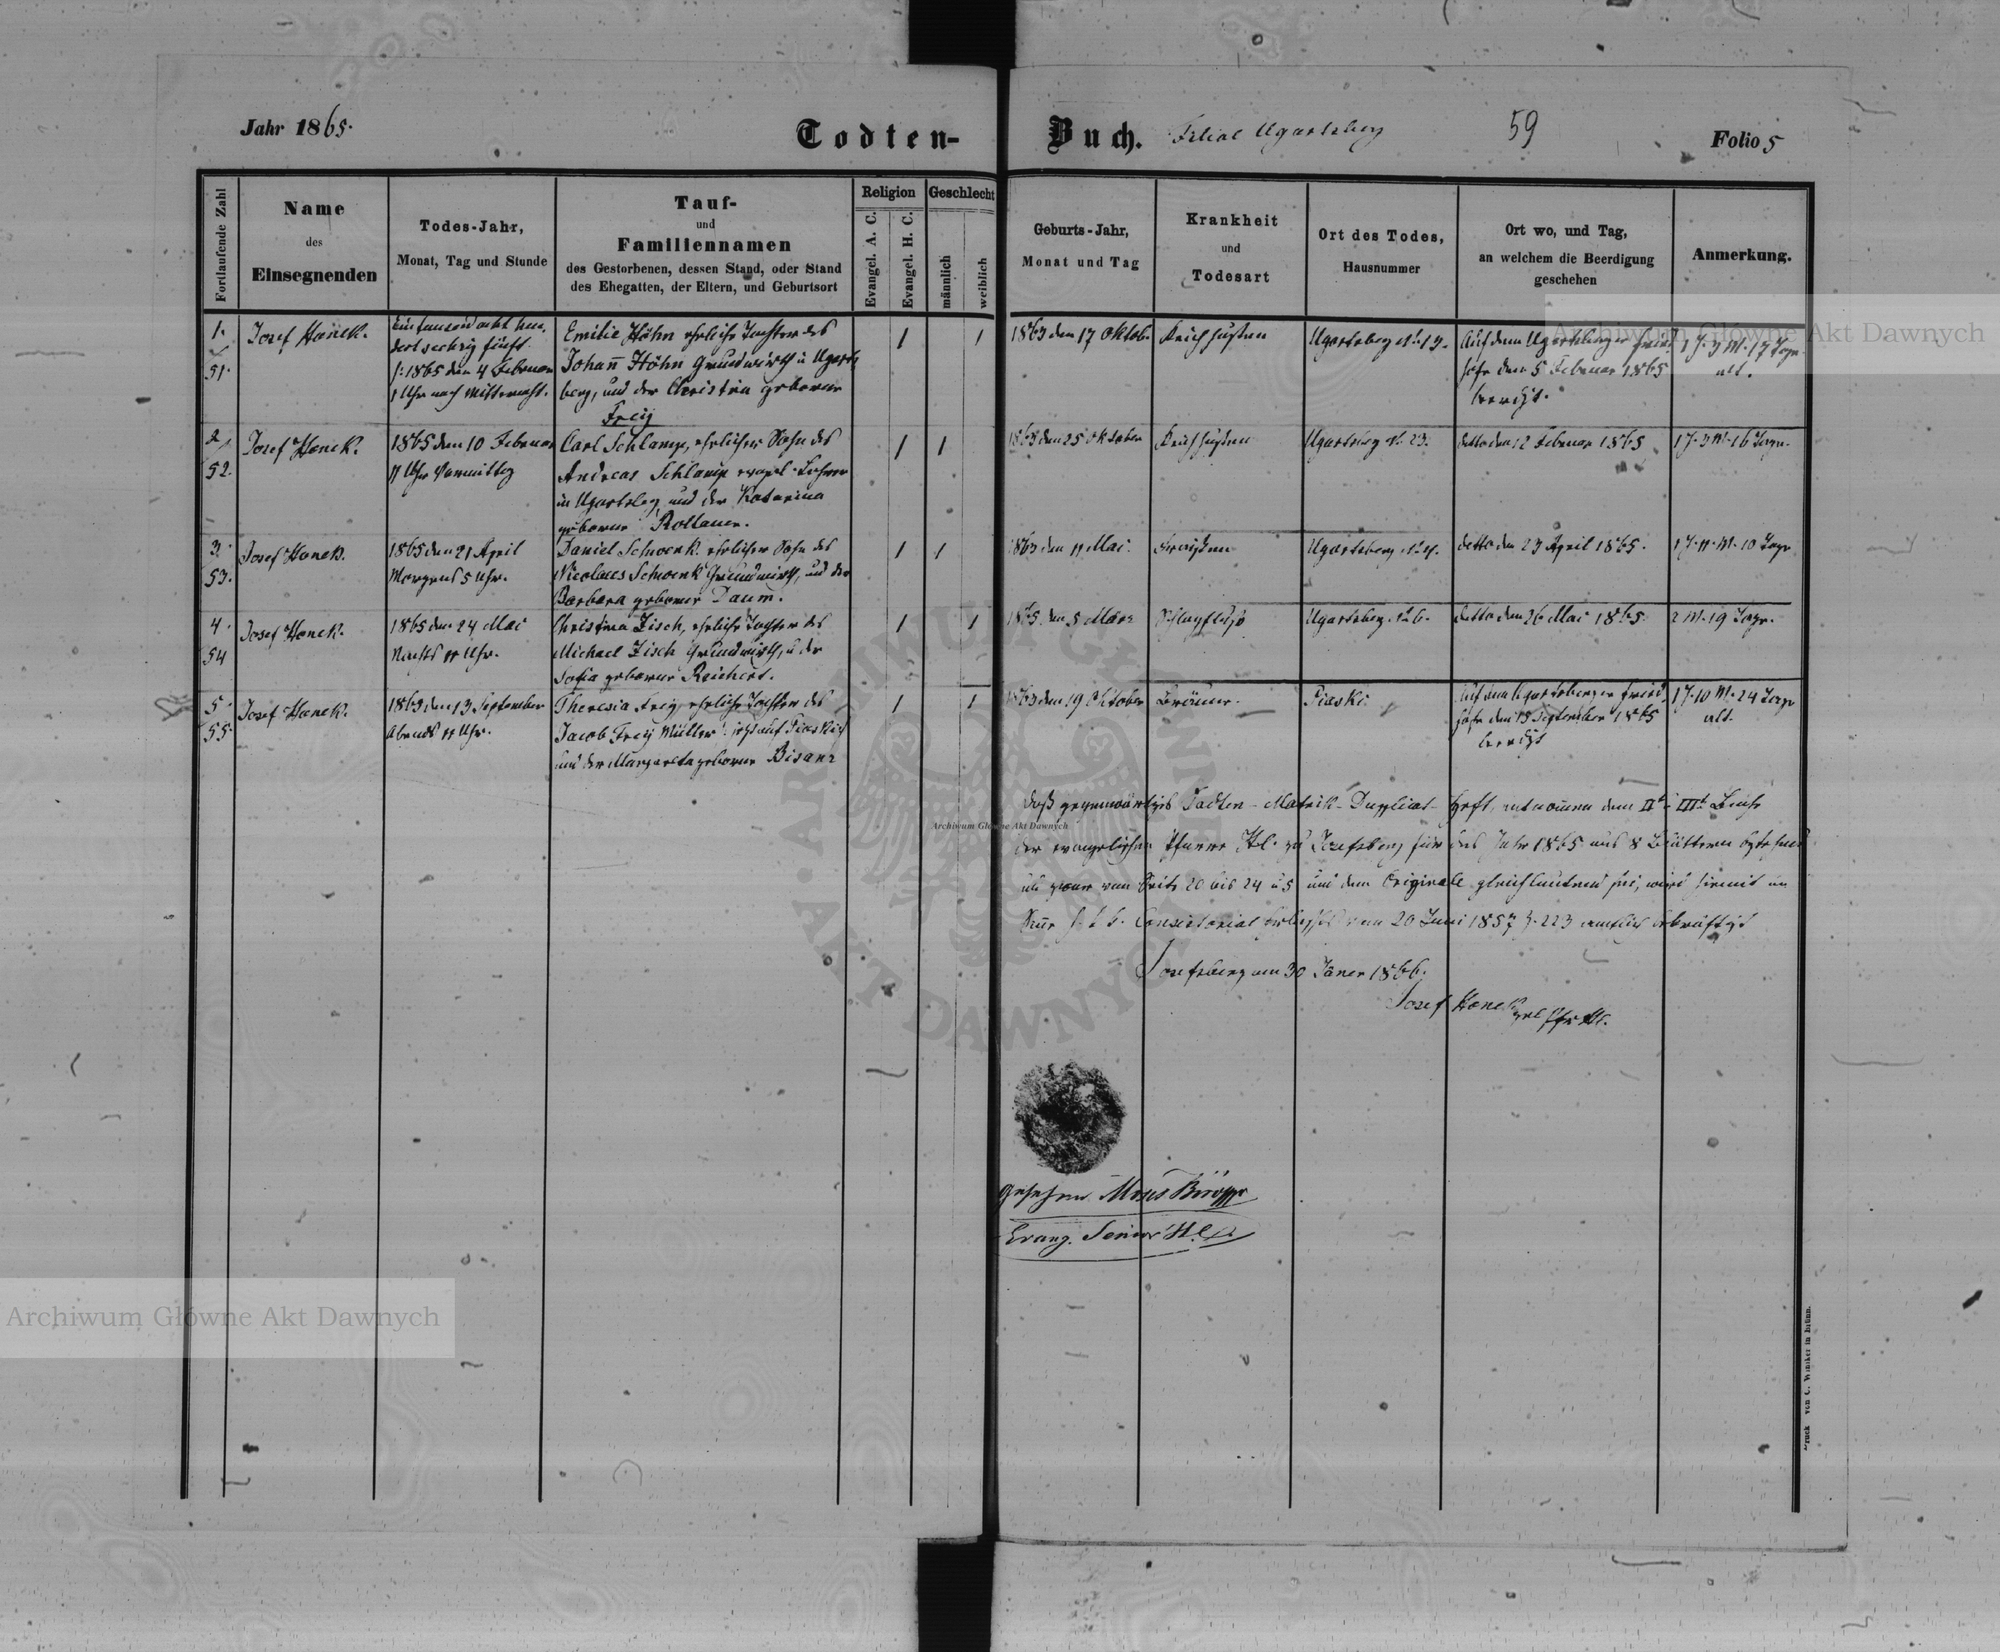 Jahr 1865.
Todten-
Buch. Filial Ugartsberg
59
Folio 5
Fortlaufende Zahl
Name
des
Einsegnenden
Todes-Jahr,
Monat, Tag und Stunde
Tauf-
und
Familiennamen
des Gestorbenen, dessen Stand, oder Stand
des Ehegatten, der Eltern, und Geburtsort
Religion
Evangel. A. C.
Evangel. H. C.
Geschlecht
männlich
weiblich
Geburts-Jahr,
Monat und Tag
Krankheit
und
Todesart
Ort des Todes,
Hausnummer
Ort wo, und Tag,
an welchem die Beerdigung
geschehen
Anmerkung.
1.
51.
Josef Hanek.
Ein tausend acht hun
dert sechzig fünf
1865 den 4 Februar
1 Uhr nach Mitternacht.
Emilie Höhn eheliche Tochter des
Johañ Höhn Grundwirth in Ugarts
berg, und der Christina geborene
Frey
1
1
1863 den 17 Oktob.
Keichhusten
Ugartsberg N. 13.
Auf dem Ugartsberger Fried
hofe den 5 Februar 1865
1 J. 3 M. 17 Tage
alt.
2
52.
Josef Hanek.
1865 den 10 Februar
11 Uhr Vormittag
Carl Schlamp, ehelicher Sohn des
Andreas Schlamp evangel. Lehrer
in Ugartsberg und der Katarina
geborene Rollauer.
1
1
1863 den 25 Oktober
Keichhusten
Ugartsberg N. 23.
detto den 12 Februar 1865
1 J. 3 M. 16 Tage.
3.
53.
Josef Hanek.
1865 den 21 April
Morgens 5 Uhr.
Daniel Schwenk ehelicher Sohn des
Nicolaus Schwenk Grundwirth, und der
Barbara geborene Daum.
1
1
1863 den 11 Mai.
Ugartsberg N. 4.
detto den 23 April 1865.
1 J. 11 M. 10 Tage
4.
54
Josef Hanek.
1865 den 24 Mai
Nachts 11 Uhr.
Christina Zisch, eheliche Tochter des
Michael Zisch Grundwirth, u der
Sofia geborene Reichert.
1
1
1865. den 5 März
Ugartsberg. N. 6.
detto den 26 Mai 1865.
2 M. 19 Tage.
5.
55.
Josef Hanek.
1865 den 13 September
Abends 11 Uhr.
Theresia Frey, eheliche Tochter des
Jacob Frey Müller jetzt auf Piaski
und der Margareta geborene Bisanz
1
1
1863 den 19 Oktober
Bräune.
Piaski
Auf dem Ugartsberger Fried
hofe den 15 September 1865
1 J. 10 M. 24 Tage
alt.
Daß gegenwärtiges Todten-Matrik-Duplicat-Heft, entnom̄en dem II u III
der evangelischen Pfarre H.C. zu Josefsberg für das Jahr 1865 aus 8 Blättern bestehend
und zwar von Seite 20 bis 24 u 5 und dem Originale gleichlautend sei, wird hiemit im
Consistorial vom 20 Juni 1857 Z. 223 amtlich bekräftigt
Josefsberg am 30 Jäner 1866.
Josef Hanek
Gesehen
Evang. Senior H.C.
Druck von C. Winiker in Brünn.
Archiwum Główne Akt Dawnych
Archiwum Główne Akt Dawnych
Archiwum Główne Akt Dawnych
ARCHIWUM GŁÓWNE AKT DAWNYCH